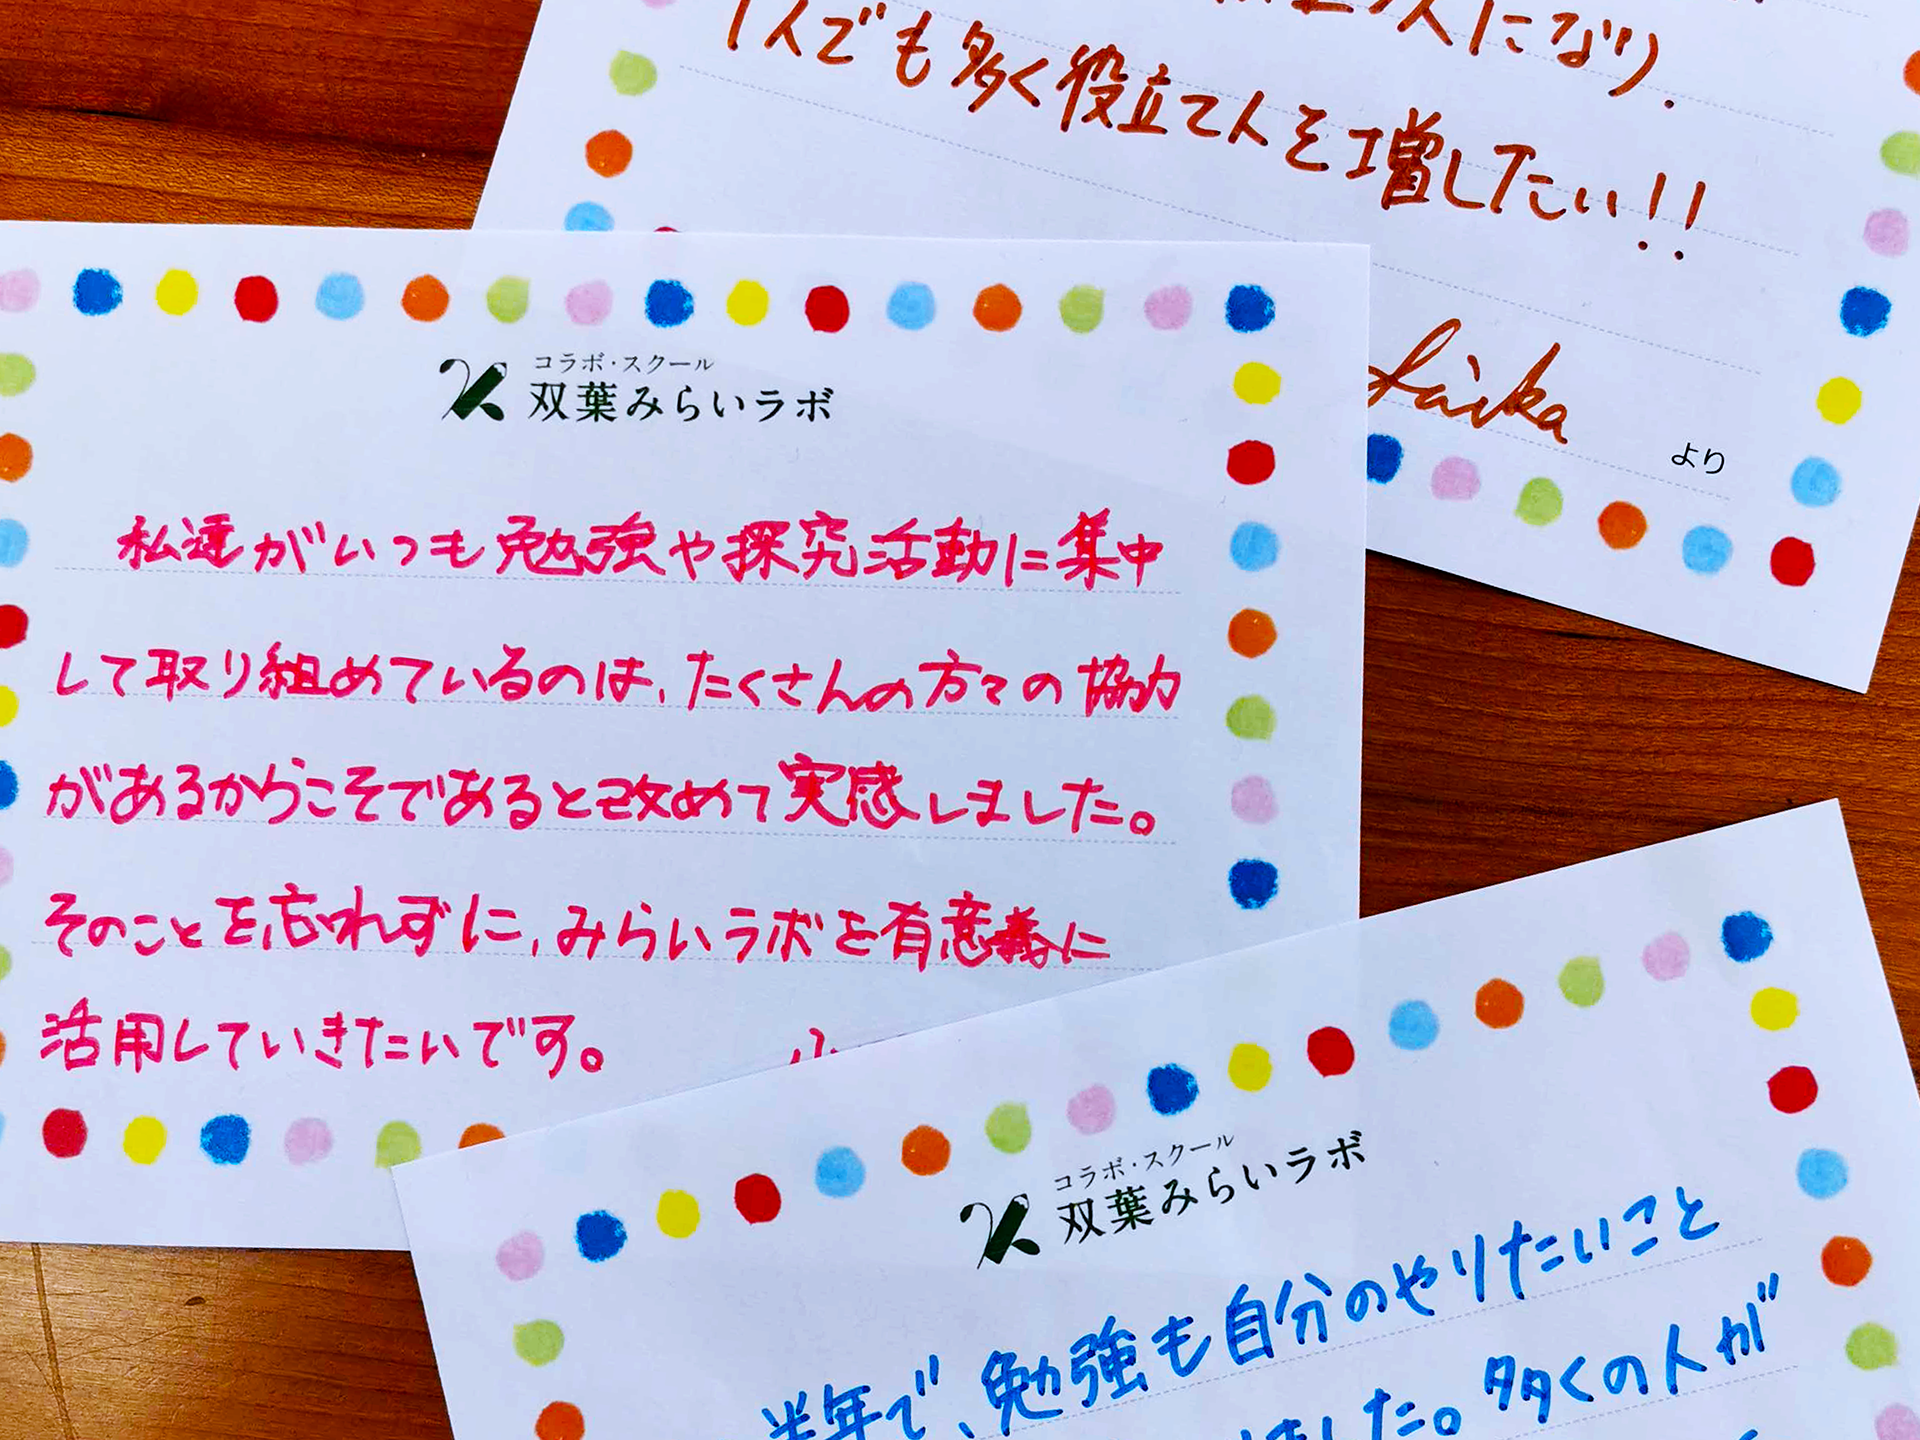 人になり、
1人でも多く役立て人を増したい!!
Saika
より
コラボ・スクール
双葉みらいラボ
私達がいつも勉強や探究活動に集中
して取り組めているのは、たくさんの方々の協力
があるからこそであると改めて実感しました。
そのことを忘れずに、みらいラボを有意義に
活用していきたいです。
コラボ・スクール
双葉みらいラボ
半年で、勉強も自分のやりたいこと
ました。多くの人が